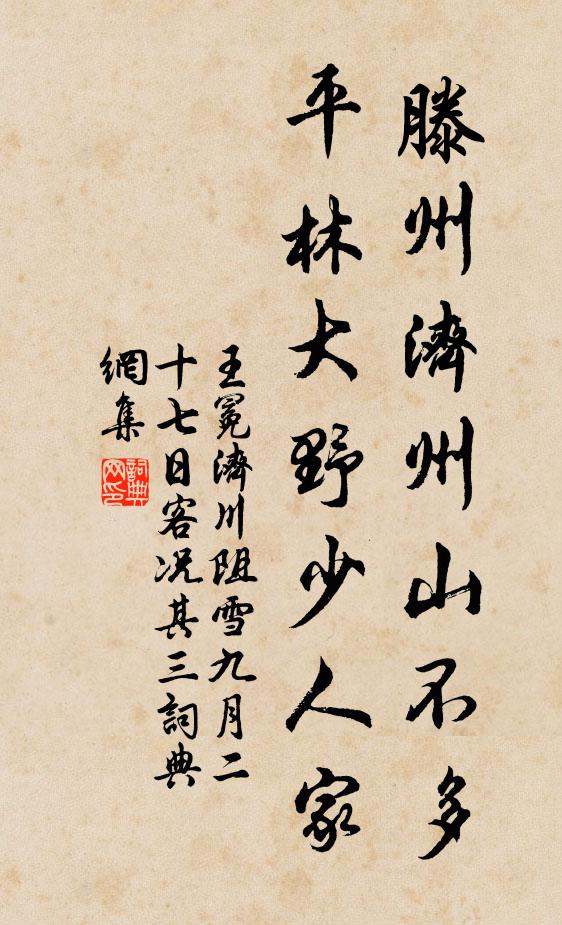 滕州濟州山不多
平林大野少人家
王冕濟川阻雪九月二
十七日客况其三詞典
網集
詞典
网印